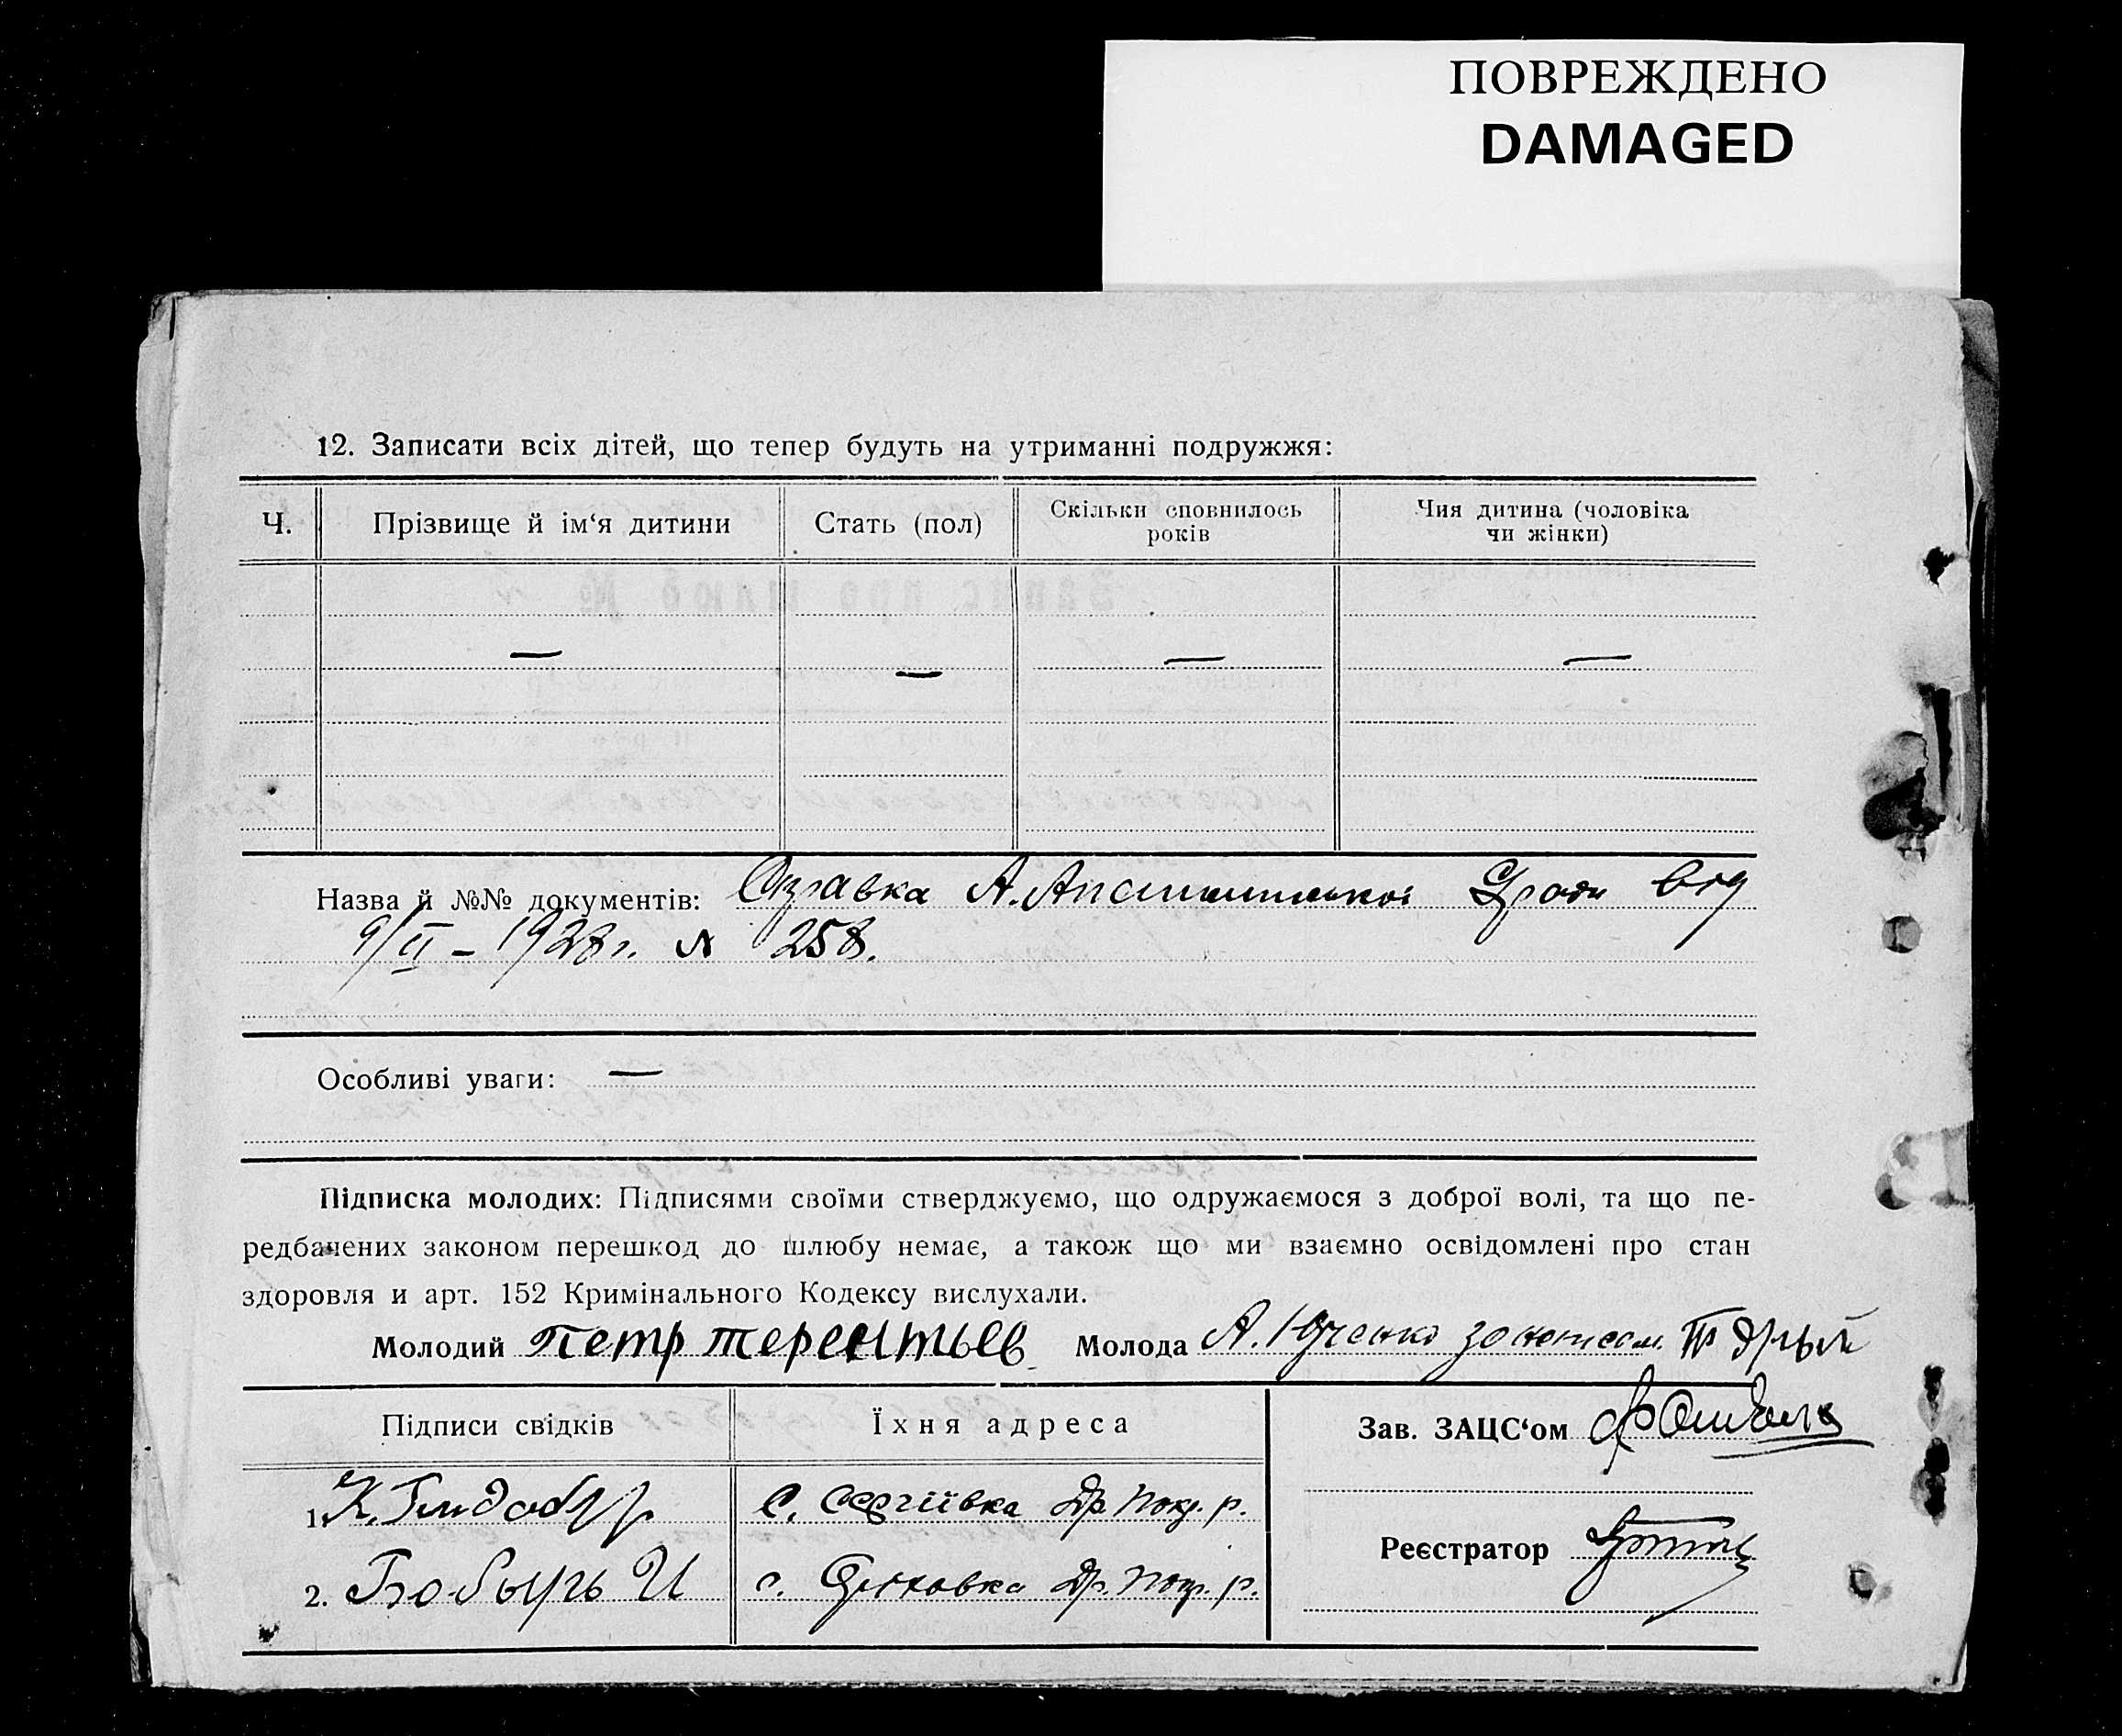 ПОВРЕЖДЕНО
DAMAGED
12. Записати всіх дітей, що тепер будуть на утриманні подружжя:
Ч. Прізвище й ім‘я дитини Стать (пол) Скільки сповнилось років Чия дитина (чоловіка чи жінки)
— — — —
Назва й №№ документів: Справка А. від
9/II – 1928 г. N 258.
Особливі уваги: —
Підписка молодих: Підписями своїми стверджуємо, що одружаємося з доброї волі, та що пе-
редбачених законом перешкод до шлюбу немає, а також що ми взаємно освідомлені про стан
здоровля и арт. 152 Кримінального Кодексу вислухали.
Молодий Петр терентьев Молода А. Юрченко
Підписи свідків Їхня адреса Зав. ЗАЦС‘ом
1. К. с. Сергіївка Др. Покр. р.
Реєстратор
2. Бобырь И с. Др. Покр. р.